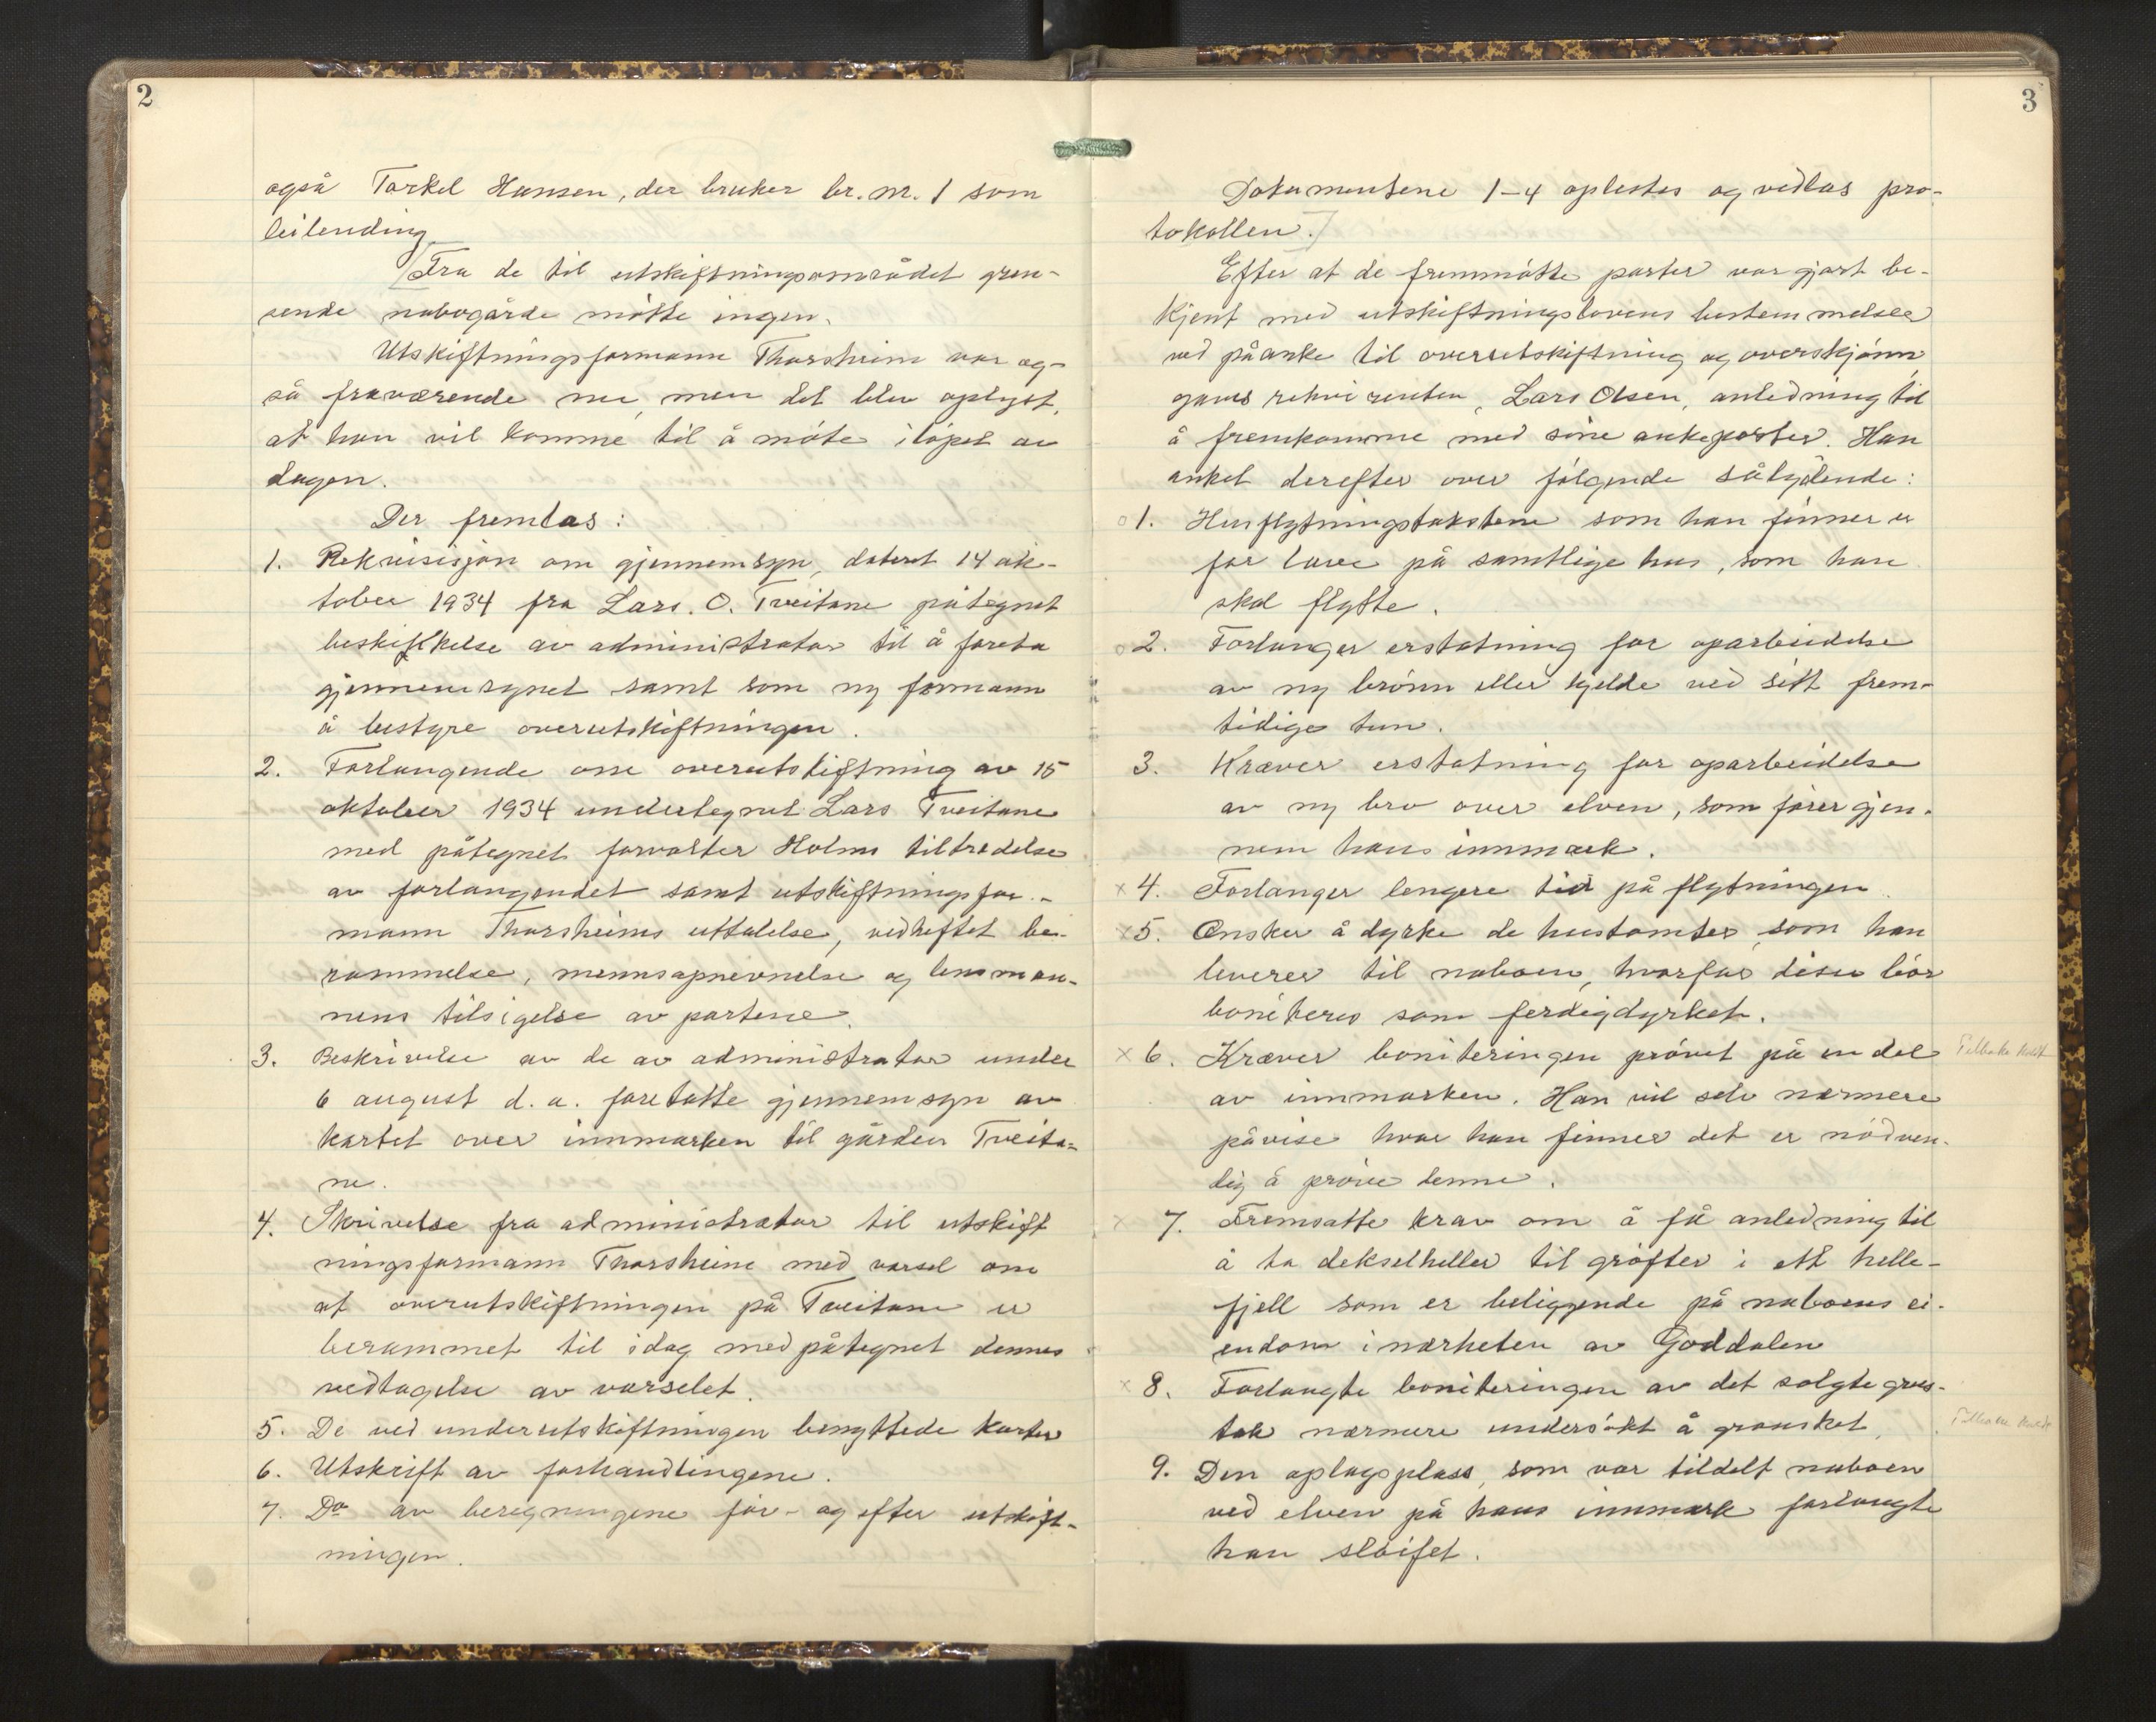 2
også Torkel Hansen, der bruker br. nr. 1 som
leilending
[Fra de til utskiftningsområdet gren-
sende nabogårde møtte ingen.
Utskiftningsformann Thorsheim var og-
så fraværende nu, men det blev oplyst,
at han vil komme til å møte i løpet av
dagen.
Der fremlas:
1. Rekvisisjon om gjennemsyn, datert 14 ok-
tober 1934 fra Lars. O. Tveitane påtegnet
beskikkelse av administrator til å foreta
gjennemsynet samt som ny formann
å bestyre overutskiftningen.
2. Forlangende om overutskiftning av 15
oktober 1934 undertegnet Lars Tveitane
med påtegnet forvalter Holms tiltredelse
av forlangendet samt utskiftningsfor-
mann Thorsheims uttalelse, vedheftet be-
rammelse, mennsopnevnelse og lensman-
nens tilsigelse av partene.
3. Beskrivelse av de av administrator under
6 august d. a. foretatte gjennemsyn av
kartet over innmarken til gården Tveita-
ne.
4. Skrivelse fra administrator til utskift
ningsformann Thorsheim med varsel om
at overutskiftningen på Tveitane er
berammet til idag med påtegnet dennes
vedtagelse av varselet.
5. De ved underutskiftningen benyttede karter
6. Utskrift av forhandlingene.
7. Do av beregningene før- og efter utskift-
ningen.
3
Dokumentene 1-4 oplestes og vedlas pro-
tokollen.]
Efter at de fremmøtte parter var gjort be-
kjent med utskiftningslovens bestemmelser
ved påanke til overutskiftning og overskjønn
gaves rekvirenten, Lars Olsen, anledning til
å fremkomme med sine ankeposter. Han
anket derefter over følgende sålydende:
o 1. Husflytningstakstene som han finner er
for lave på samtlige hus, som han
skal flytte.
o 2. Forlanger erstatning for oparbeidelse
av ny brønn eller kjelde ved sitt frem-
tidige tun.
3. Kræver erstatning for oparbeidelse
av ny bro over elven, som fører gjen-
nem hans innmark.
x 4. Forlanger lengere tid på flytningen.
x 5. Ønsker å dyrke de hustomter som han
leverer til naboen, hvorfor disse bør
boniteres som ferdigdyrket.
x 6. Kræver boniteringen prøvet på en del Tilbake kaldt
av innmarken. Han vil selv nærmere
påvise hvor han finner det er nødven-
dig å prøve denne.
x 7. Fremsatte krav om å få anledning til
å ta dekselheller til grøfter i ett helle-
fjell som er beliggende på naboens ei-
endom i nærheten av Goddalen
x 8. Forlangte boniteringen av det solgte grus-
tak nærmere undersøkt å gransket. Tilbake kaldt
9. Den oplagsplass, som var tildelt naboen
ved elven på hans innmark forlangte
han sløifet.